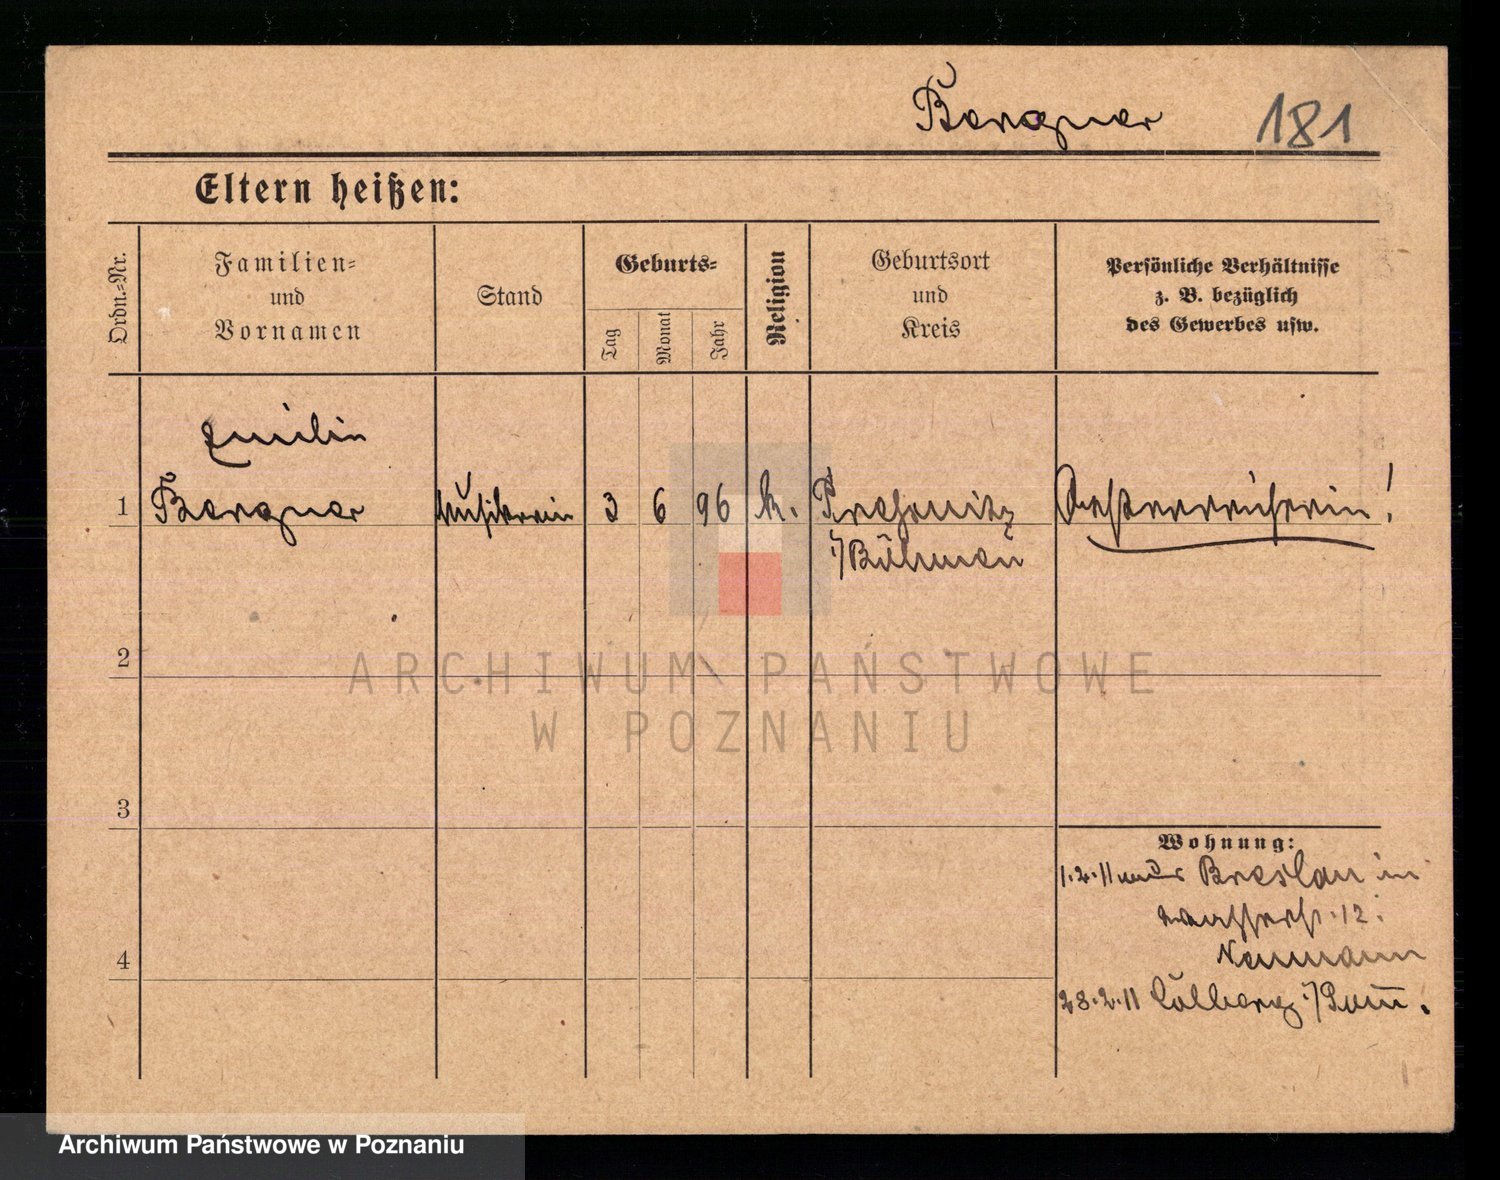 Bergner 181
Eltern heißen:
Ordn.-Nr.
Familien-
und
Vornamen
Stand
Geburts-
Tag
Monat
Jahr
Religion
Geburtsort
und
Kreis
Persönliche Verhältnisse
z. B. bezüglich
des Gewerbes usw.
Emilie
1 Bergner Musikerin 3 6 96 k. Pressnitz Oesterreicherin!
i/Böhmen
2
ARCHIWUM PAŃSTWOWE
W POZNANIU
3
Wohnung:
1.2.11 aus Breslau in
Wasserstr. 12.
4
Neumann
28.2.11 Colberg i/Pom.
Archiwum Państwowe w Poznaniu